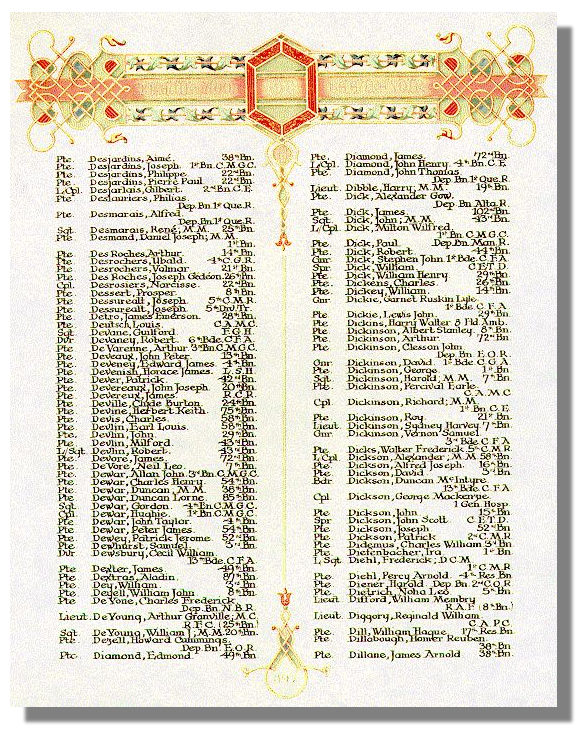 Pte. Desjardins, Aimé. 38th Bn.
Pte. Desjardins, Joseph. 1st Bn. C.M.G.C.
Pte. Desjardins, Philippe 22nd Bn.
Pte. Desjardins, Pierre Paul 22nd Bn.
L/Cpl. Desjarlais, Gilbert. 2nd Bn. C.E.
Pte. Deslauriers, Philias
Dep. Bn 1st Que. R.
Pte. Desmarais, Alfred
Dep. Bn 1st Que. R.
Sgt. Desmarais, René; M.M. 25th Bn.
Pte. Desmond, Daniel Joseph; M.M.
1st Bn.
Pte. Des Roches, Arthur. 14th Bn.
Pte. Desrochers, Ubald. 4th C.G.R.
Pte. Desrochers, Valmar 21st Bn.
Pte. Des Roches, Joseph Gédéon. 26th Bn.
Cpl. Desrosiers, Narcisse. 22nd Bn.
Pte. Dessert, Prosper. 8th Bn.
Pte. Dessureault, Joseph. 5th C.M.R.
Pte. Dessureault, Joseph. 5th Div. Tr.
Pte. Detro, James Emerson. 28th Bn.
Pte. Deutsch, Louis. C.A.M.C.
Sgt. Devane, Guilford. F.G.H.
Dvr. Devaney, Robert. 6th Bde. C.F.A.
Pte. De Varenne, Arthur. 3rd Bn. C.M.G.C.
Pte. Deveaux, John Peter. 13th Bn.
Pte. Deveney, Edward James. 4th Bn.
Pte. Devenish, Horace James. L.S.H.
Pte. Dever, Patrick. 42nd Bn.
Pte. Devereaux, John Joseph. 20th Bn.
Pte. Devereux, James. R.C.R.
Pte. Deville, Clyde Burton. 24th Bn.
Pte. Devine, Herbert Keith. 75th Bn.
Pte. Devis, Charles. 58th Bn.
Pte. Devlin, Earl Louis. 58th Bn.
Pte. Devlin, John. 29th Bn.
Pte. Devlin, Milford. 43rd Bn.
L/Sgt. Devlin, Robert. 43rd Bn.
Pte. Devore, James. 72nd Bn.
Pte. DeVore, Neil Leo. 7th Bn.
Pte. Dewar, Allan John. 3rd Bn. C.M.G.C.
Pte. Dewar, Charles Henry. 54th Bn.
Pte. Dewar, Duncan; M.M. 36th Bn.
Pte. Dewar, Duncan Lorne. 85th Bn.
Sgt. Dewar, Gordon. 4th Bn. C.M.G.C.
Cpl. Dewar, Hughie. 1st Bn. C.M.G.C.
Pte. Dewar, John Taylor. 4th Bn.
Pte. Dewar, Peter James. 54th Bn.
Pte. Dewey, Patrick Jerome 52nd Bn.
Pte. Dewhurst, Samuel. 3rd Bn.
Dvr. Dewsbury, Cecil William
13th Bde. C.F.A.
Pte. Dexter, James. 49th Bn.
Pte. Dextras, Aladin. 87th Bn.
Pte. Dey, William 3rd Bn.
Pte. Deyell, William John 8th Bn.
Pte. DeYone, Charles Frederick.
Dep. Bn. N.B.R.
Lieut. DeYoung, Arthur Granville; M.C.
R.F.C. (25th Bn.)
Sgt. DeYoung, William J.; M.M. 20th Bn.
Pte. Dezell, Howard Cummings
Dep. Bn. E.O.R.
Pte. Diamond, Edmond. 49th Bn.
Pte. Diamond, James. 72nd Bn.
L/Cpl. Diamond, John Henry. 4th Bn. C.E.
Pte. Diamond, John Thomas
Dep. Bn 1st Que. R.
Lieut. Dibble, Harry; M.M. 19th Bn.
Pte. Dick, Alexander Gow.
Dep. Bn. Alta. R.
Pte. Dick, James. 102nd Bn.
Sgt. Dick, John; M.M. 43rd Bn.
L/Cpl. Dick, Milton Wilfred
1st Bn. C.M.G.C.
Pte. Dick, Paul. Dep. Bn. Man. R.
Pte. Dick, Robert. 44th Bn.
Gnr. Dick, Stephen John 1st Bde. C.F.A.
Spr. Dick, William. C.E.T.D.
Pte. Dick, William Henry. 29th Bn.
Pte. Dickens, Charles. 26th Bn.
Pte. Dickey, William. 14th Bn.
Gnr. Dickie, Garnet Ruskin Lyle.
1st Bde. C.F.A.
Pte. Dickie, Lewis John. 29th Bn.
Pte. Dickins, Harry Walter 8 Fld. Amb.
Pte. Dickinson, Albert Stanley. 8th Bn.
Pte. Dickinson, Arthur. 72nd Bn.
Pte. Dickinson, Clesson John
Dep. Bn. E.O.R.
Gnr. Dickinson, David. 1st Bde. C.G.A.
Pte. Dickinson, George. 1st Bn.
Sgt. Dickinson, Harold; M.M. 7th Bn.
Pte. Dickinson, Percival Earle.
C.A.M.C.
Cpl. Dickinson, Richard; M.M.
1st Bn. C.E.
Pte. Dickinson, Roy. 21st Bn.
Lieut. Dickinson, Sydney Harvey 7th Bn.
Gnr. Dickinson, Vernon Samuel
3rd Bde. C.F.A.
Pte. Dicks, Walter Frederick. 5th C.M.R.
L/Cpl. Dickson, Alexander; M.M. 58th Bn.
Pte. Dickson, Alfred Joseph. 16th Bn.
Pte. Dickson, David. 5th Bn.
Bdr. Dickson, Duncan McIntyre.
13th Bde. C.F.A.
Cpl. Dickson, George Mackenzie.
1 Gen. Hosp.
Pte. Dickson, John 15th Bn.
Spr. Dickson, John Scott. C.E.T.D.
Pte. Dickson, Joseph 52nd Bn.
Pte. Dickson, Patrick 2nd C.M.R.
Pte. Didemus, Charles William 3rd Bn.
Pte. Diefenbacher, Ira 1st Bn.
L/Sgt. Diehl, Frederick; D.C.M.
1st C.M.R.
Pte. Diehl, Percy Arnold. 4th Res. Bn.
Pte. Diener, Harald. Dep. Bn 2nd C.O.R.
Pte. Dietrich, Noha Leo. 5th Bn.
Lieut. Difford, William Membry
R.A.F. (8th Bn.)
Lieut. Diggory, Reginald William
C.A.P.C.
Pte. Dill, William Hague 17th Res. Bn.
Pte. Dillabough, Homer Reuben.
38th Bn.
Pte. Dillane, James Arnold 38th Bn.